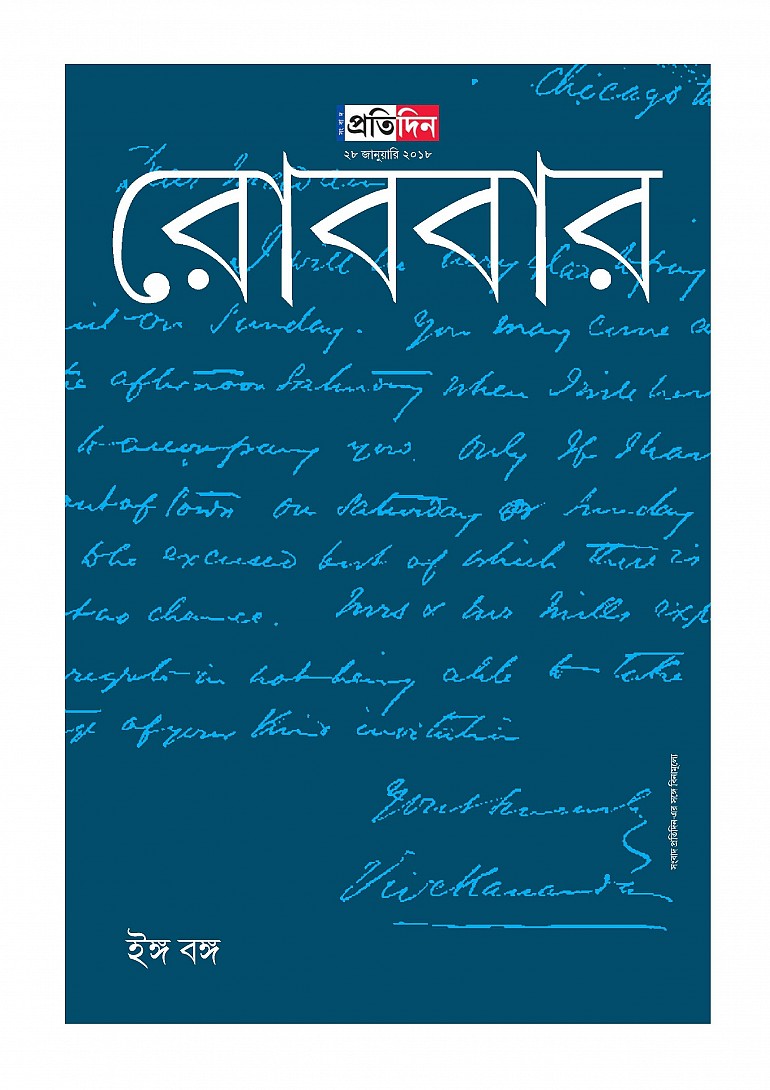 Chicago
সংবাদ প্রতিদিন
২৮ জানুয়ারি ২০১৮
রোববার
Dear Madam
I will be very glad to pray
out on Sunday. You may come
the afternoon Saturday when I will be
to accompany you. Only If I have
out of Town on Saturday or Sunday
to be excused but of which there is
chance. Mrs & Mills
regrets in not being able to take
of your kind invitation
Yours
Vivekananda
সংবাদ প্রতিদিন-এর সঙ্গে বিনামূল্যে
ইঙ্গ বঙ্গ